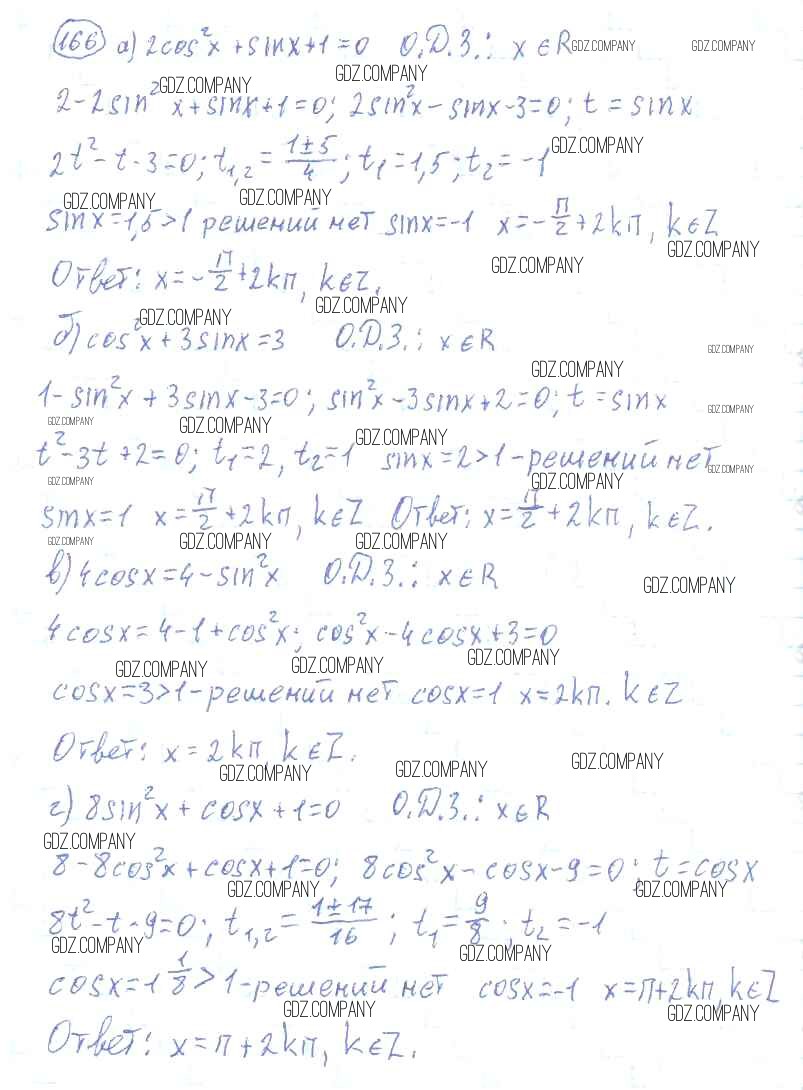 166 а) 2cos²x + sinx + 1 = 0 О.Д.З.: x ∈ R GDZ.COMPANY GDZ.COMPANY
GDZ.COMPANY GDZ.COMPANY
2 - 2sin²x + sinx + 1 = 0; 2sin²x - sinx - 3 = 0; t = sinx
2t² - t - 3 = 0; t₁,₂ = (1 ± 5)/4; t₁ = 1,5; t₂ = -1 GDZ.COMPANY
GDZ.COMPANY GDZ.COMPANY
sinx = 1,5 > 1 решений нет sinx = -1 x = -π/2 + 2kπ, k ∈ Z
GDZ.COMPANY
Ответ: x = -π/2 + 2kπ, k ∈ Z. GDZ.COMPANY
GDZ.COMPANY GDZ.COMPANY
б) cos²x + 3sinx = 3 О.Д.З.: x ∈ R
GDZ.COMPANY
GDZ.COMPANY
1 - sin²x + 3sinx - 3 = 0; sin²x - 3sinx + 2 = 0; t = sinx GDZ.COMPANY
GDZ.COMPANY GDZ.COMPANY GDZ.COMPANY
t² - 3t + 2 = 0; t₁ = 2, t₂ = 1 sinx = 2 > 1 - решений нет GDZ.COMPANY
GDZ.COMPANY GDZ.COMPANY
sinx = 1 x = π/2 + 2kπ, k ∈ Z Ответ: x = π/2 + 2kπ, k ∈ Z.
GDZ.COMPANY GDZ.COMPANY GDZ.COMPANY
в) 4cosx = 4 - sin²x О.Д.З.: x ∈ R GDZ.COMPANY
4cosx = 4 - 1 + cos²x; cos²x - 4cosx + 3 = 0
GDZ.COMPANY GDZ.COMPANY GDZ.COMPANY
cosx = 3 > 1 - решений нет cosx = 1 x = 2kπ. k ∈ Z
Ответ: x = 2kπ, k ∈ Z.
GDZ.COMPANY GDZ.COMPANY GDZ.COMPANY
г) 8sin²x + cosx + 1 = 0 О.Д.З.: x ∈ R
GDZ.COMPANY
8 - 8cos²x + cosx + 1 = 0; 8cos²x - cosx - 9 = 0; t = cosx
GDZ.COMPANY GDZ.COMPANY
8t² - t - 9 = 0; t₁,₂ = (1 ± 17)/16; t₁ = 9/8; t₂ = -1
GDZ.COMPANY GDZ.COMPANY
cosx = 1 1/8 > 1 - решений нет cosx = -1 x = π + 2kπ, k ∈ Z
GDZ.COMPANY GDZ.COMPANY
Ответ: x = π + 2kπ, k ∈ Z.